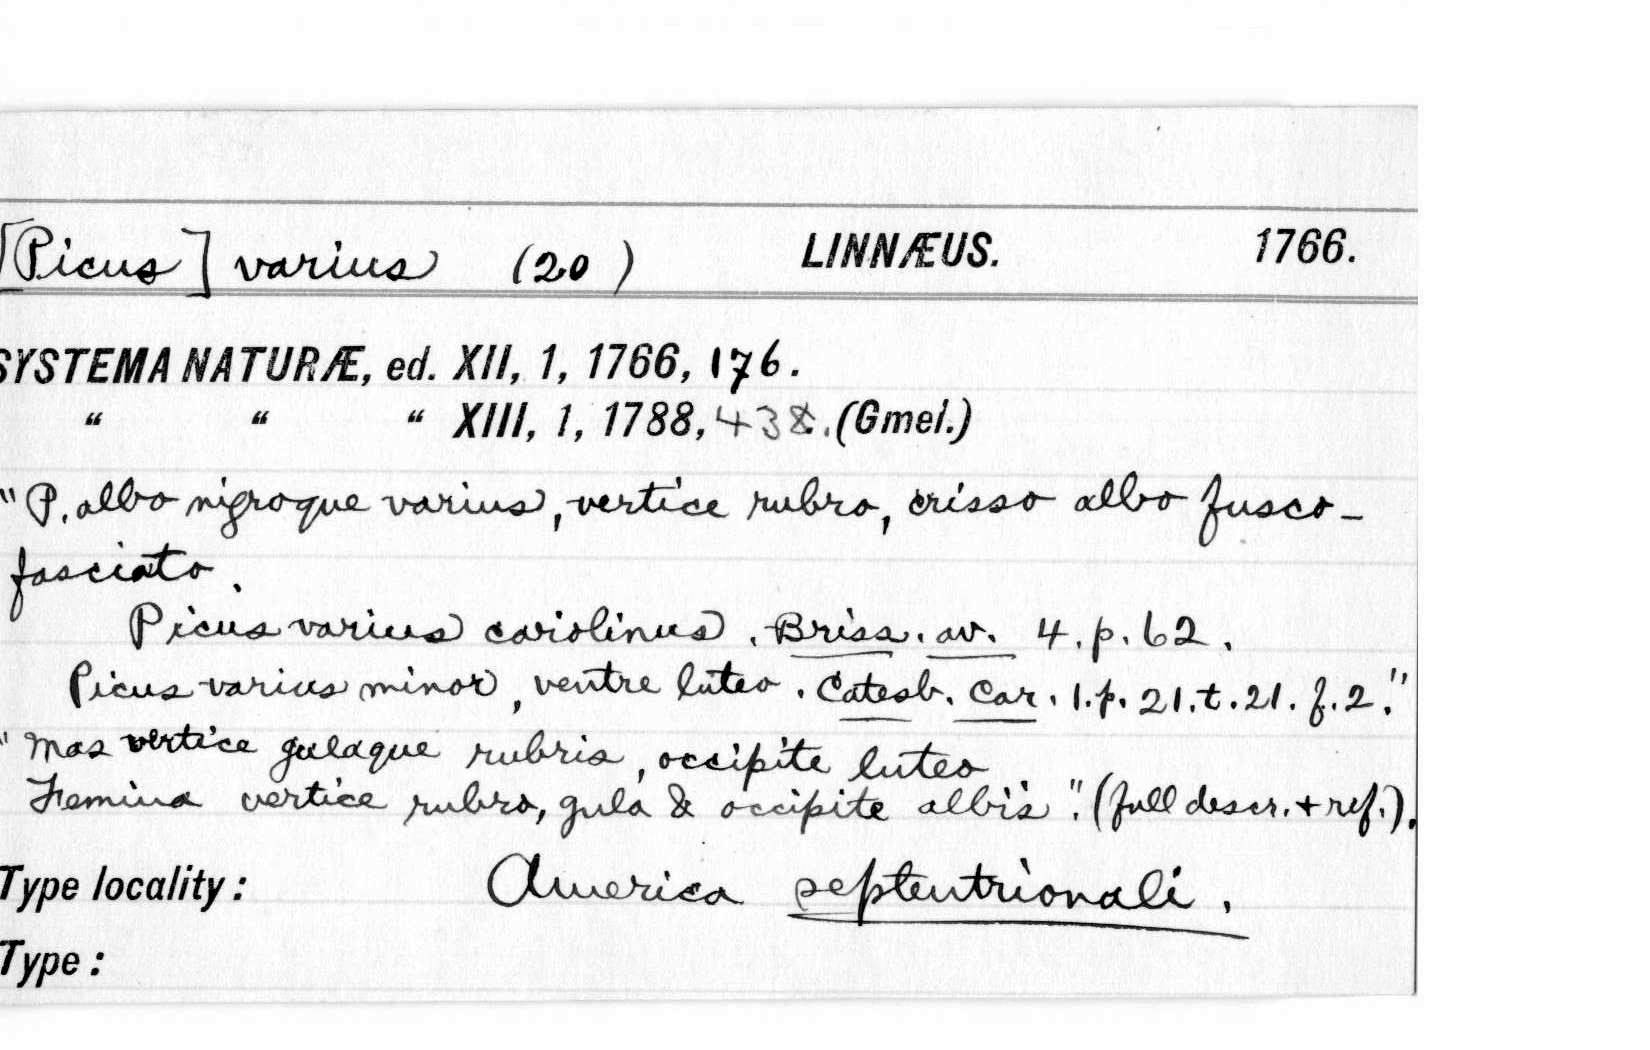 [Picus] varius (20) LINNÆUS. 1766.
SYSTEMA NATURÆ, ed. XII, 1, 1766, 176.
“ “ “ XIII, 1, 1788, 438. (Gmel.)
"P. albo nigroque varius, vertice rubro, crisso albo fusco-
fasciato.
Picus varius carolinus. Briss. av. 4. p. 62.
Picus varius minor, ventre luteo. Catesb. Car. 1. p. 21. t. 21. f. 2."
"Mas vertice gulaque rubris, occipite luteo
Femina vertice rubro, gula & occipite albis". (full descr. + ref.).
Type locality: America septentrionali.
Type: